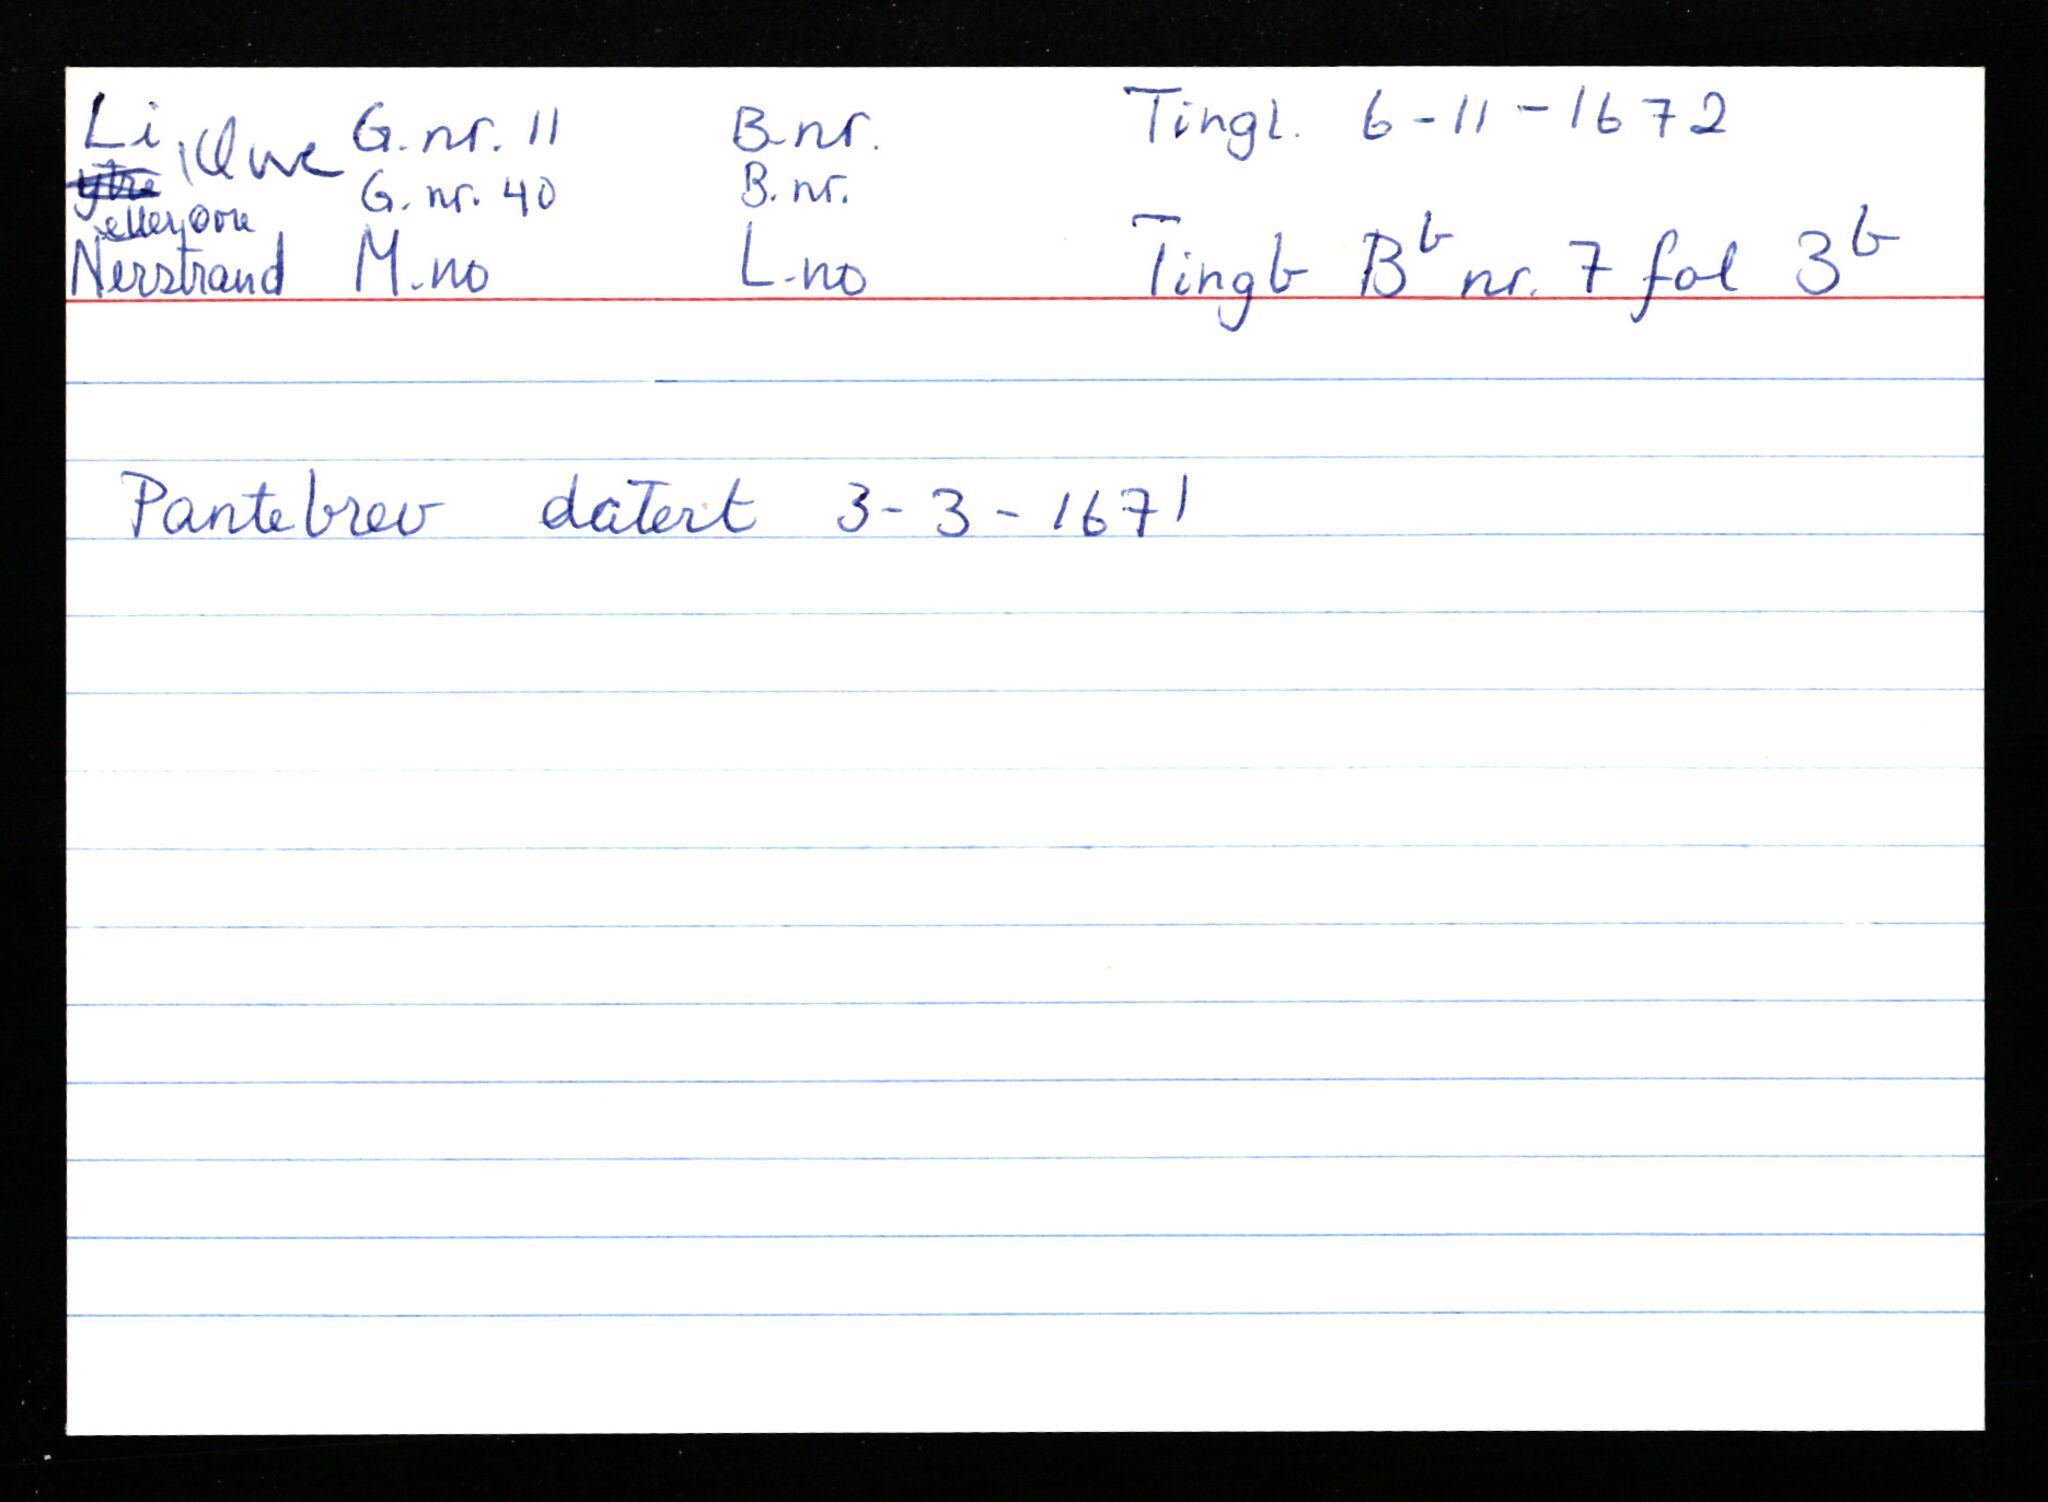 Li, Øvre G.nr. 11 B.nr. Tingl. 6-11-1672
ytre G.nr. 40 B.nr.
eller, Øvre
Nerstrand M.no L.no Tingb Bᵇ nr. 7 fol 3ᵇ
Pantebrev datert 3-3-1671